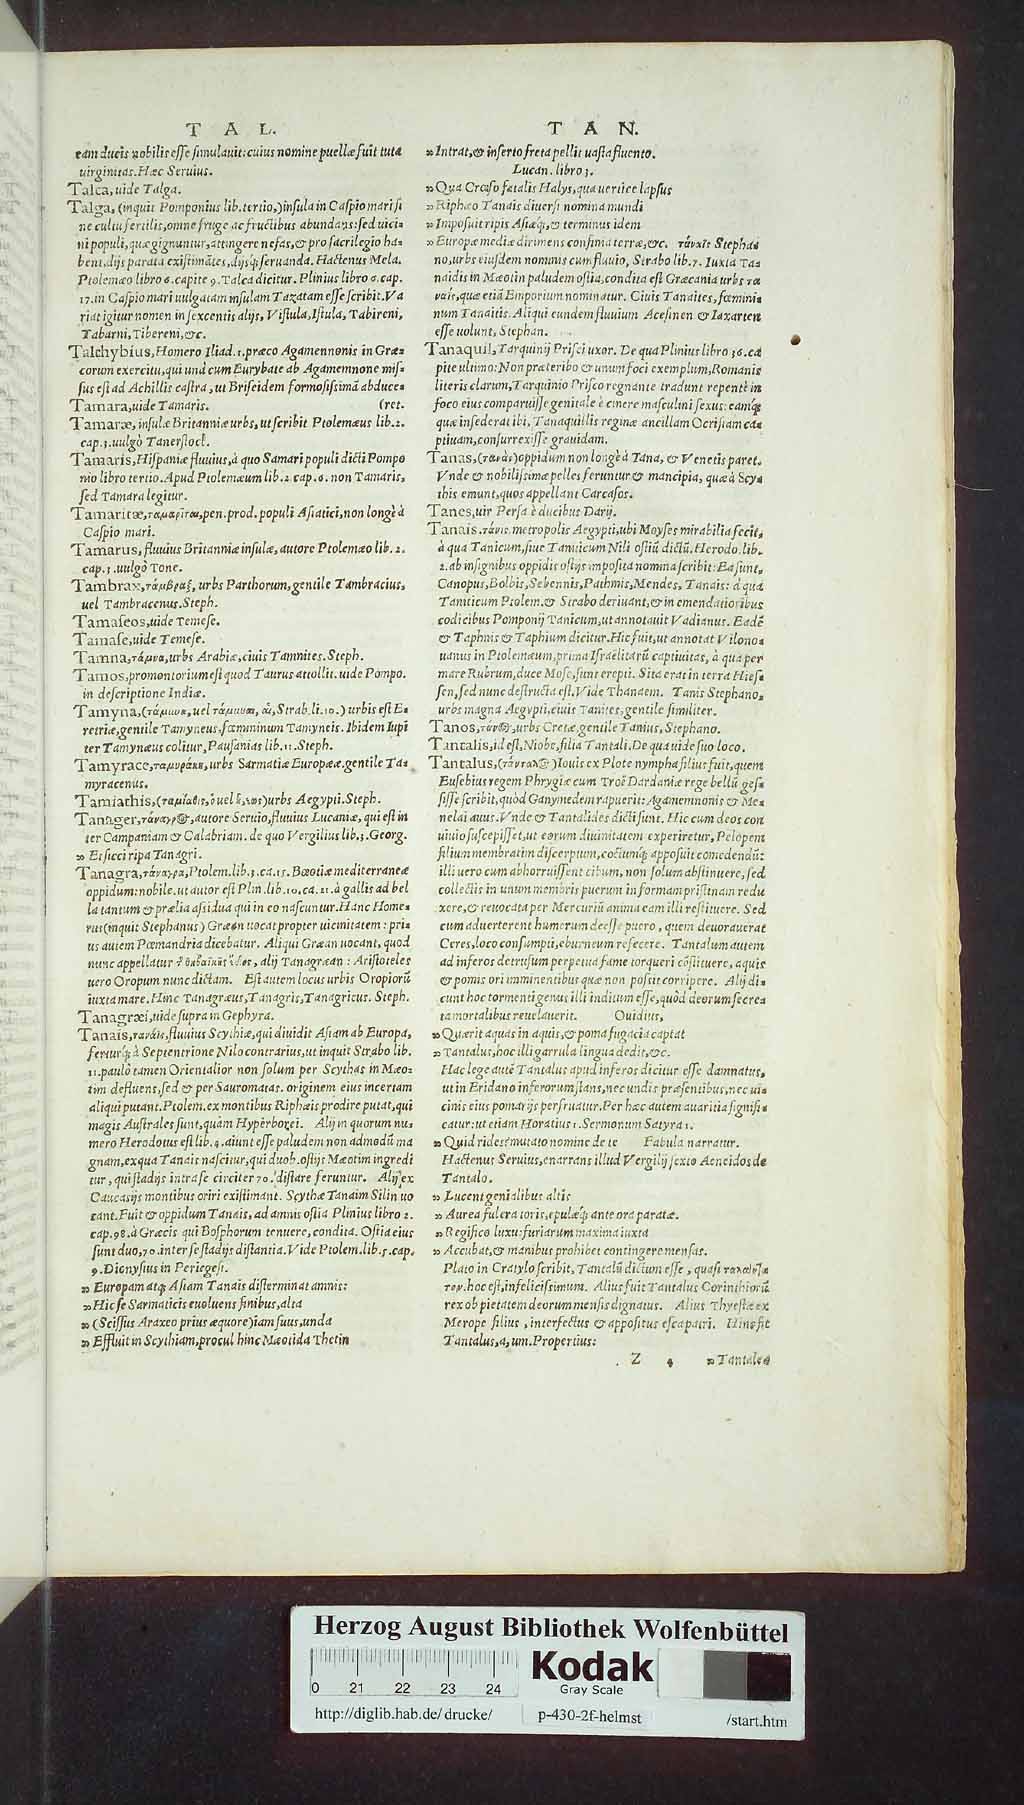 T A L.
eam ducis nobilis esse simulauit: cuius nomine puellæ fuit tuta
uirginitas. Hæc Seruius.
Talca, uide Talga.
Talga, (inquit Pomponius lib. tertio,) insula in Caspio mari si
ne cultu fertilis, omne fruge ac fructibus abundans: sed uici-
ni populi, quæ gignuntur, attingere nefas, & pro sacrilegio ha-
bent, dijs parata existimātes, dijsq́; seruanda. Hactenus Mela.
Ptolemæo libro 6. capite 9. Talca dicitur. Plinius libro 6. cap.
17. in Caspio mari uulgatam insulam Tazatam esse scribit. Va
riat igitur nomen in sexcentis alijs, Vistula, Istula, Tabireni,
Tabarni, Tibereni, &c.
Talthybius, Homero Iliad. 1. præco Agamennonis in Græ-
corum exercitu, qui und cum Eurybate ab Agamemnone mis-
sus est ad Achillis castra, ut Briseidem formosissimā abduce-
Tamara, uide Tamaris. (ret.
Tamaræ, insulæ Britanniæ urbs, ut scribit Ptolemæus lib. 2.
cap. 3. uulgò Tanerstock.
Tamaris, Hispaniæ fluuius, à quo Samari populi dicti Pompo
nio libro tertio. Apud Ptolemæum lib. 2. cap. 6. non Tamaris,
sed Tamara legitur.
Tamaritæ, ταμαρῖται, pen. prod. populi Asiatici, non longè à
Caspio mari.
Tamarus, fluuius Britanniæ insulæ, autore Ptolemæo lib. 2.
cap. 3. uulgò Tone.
Tambrax, τάμβραξ, urbs Parthorum, gentile Tambracius,
uel Tambracenus. Steph.
Tamaseos, uide Temese.
Tamase, uide Temese.
Tamna, τάμνα, urbs Arabiæ, ciuis Tamnites. Steph.
Tamos, promontorium est quod Taurus attollit. uide Pompo.
in descriptione Indiæ.
Tamyna, (τάμυνα, uel ταμύναι, ῶν, Strab. li. 10.) urbis est E-
retriæ, gentile Tamyneus, fœmininum Tamyneis. Ibidem Iupi
ter Tamynæus colitur, Pausanias lib. 11. Steph.
Tamyrace, ταμυράκη, urbs Sarmatiæ Europææ. gentile Ta-
myracenus.
Tamiathis, (ταμίαθις, uel) urbs Aegypti. Steph.
Tanager, autore Seruio, fluuius Lucaniæ, qui est in
ter Campaniam & Calabriam. de quo Vergilius lib. 3. Georg.
» Et sicci ripa Tanagri.
Tanagra, τάναγρα, Ptolem. lib. 3. ca. 15. Bœotiæ mediterraneæ
oppidum: nobile. ut autor est Plin. lib. 10. ca. 21. à gallis ad bel
la tantum & prælia assidua qui in eo nascuntur. Hanc Home-
rus (inquit Stephanus) Græan uocat propter uicinitatem: pri-
us autem Pœmandria dicebatur. Aliqui Græan uocant, quod
nunc appellatur, alij Tanagræan: Aristoteles
uero Oropum nunc dictam. Est autem locus urbis Oropiorū
iuxta mare. Hinc Tanagræus, Tanagris, Tanagricus. Steph.
Tanagræi, uide supra in Gephyra.
Tanais, τανάϊς, fluuius Scythiæ, qui diuidit Asiam ab Europa,
ferturq́; à Septentrione Nilo contrarius, ut inquit Strabo lib.
11. paulò tamen Orientalior non solum per Scythas in Mæo-
tim defluens, sed & per Sauromatas. originem eius incertam
aliqui putant. Ptolem. ex montibus Riphæis prodire putat, qui
magis Australes sunt, quàm Hyperborei. Alij in quorum nu-
mero Herodotus est lib. 4. aiunt esse paludem non admodū ma
gnam, ex qua Tanais nascitur, qui duob. ostijs Mæotim ingredi
tur, qui stadijs intra se circiter 70. distare feruntur. Alij ex
Caucasijs montibus oriri existimant. Scythæ Tanaim Silin uo
cant. Fuit & oppidum Tanais, ad amnis ostia Plinius libro 2.
cap. 98. à Græcis qui Bosphorum tenuere, condita. Ostia eius
sunt duo, 70. inter se stadijs distantia. Vide Ptolem. lib. 5. cap.
9. Dionysius in Periegesi.
» Europam atq; Asiam Tanais disterminat amnis:
» Hic se Sarmaticis euoluens finibus, alta
» (Scissus Araxeo prius æquore) iam suus, unda
» Effluit in Scythiam, procul hinc Mæotida Thetin
T A N.
» Intrat, & inserto freta pellit uasta fluento.
Lucan. libro 3.
» Qua Crœso fatalis Halys, qua uertice lapsus
» Riphæo Tanais diuersi nomina mundi
» Imposuit ripis Asiæq́;, & terminus idem
» Europæ mediæ dirimens confinia terræ, &c. τάναϊς Stepha-
no, urbs eiusdem nominis cum fluuio, Strabo lib. 7. Iuxta Ta-
naidis in Mæotin paludem ostia, condita est Græcania urbs τά
ναϊς, quæ etiā Emporium nominatur. Ciuis Tanaites, fœmini-
num Tanaitis. Aliqui eundem fluuium Acesinen & Iaxarten
esse uolunt, Stephan.
Tanaquil, Tarquinij Prisci uxor. De qua Plinius libro 36. ca
pite ultimo: Non præteribo & unum foci exemplum, Romanis
literis clarum, Tarquinio Prisco regnante tradunt repentè in
foco eius comparuisse genitale è cinere masculini sexus: eamq́;
quæ insederat ibi, Tanaquillis reginæ ancillam Ocrisiam ca-
ptiuam, consurrexisse grauidam.
Tanas, (τανάς) oppidum non longè à Tana, & Venetis paret.
Vnde & nobilissimæ pelles feruntur & mancipia, quæ à Scy-
this emunt, quos appellant Carcasos.
Tanes, uir Persa è ducibus Darij.
Tanais. τάνις, metropolis Aegypti, ubi Moyses mirabilia fecit,
à qua Tanicum, siue Taniticum Nili ostiū dictū. Herodo. lib.
2. ab insignibus oppidis ostijs imposita nomina scribit: Ea sunt,
Canopus, Bolbis, Sebennis, Pathmis, Mendes, Tanais: à qua
Taniticum Ptolem. & Strabo deriuant, & in emendatioribus
codicibus Pomponij Tanicum, ut annotauit Vadianus. Eadē
& Taphnis & Taphium dicitur. Hic fuit, ut annotat Vilono-
uanus in Ptolemæum, prima Israëlitarū captiuitas, à qua per
mare Rubrum, duce Mose, sunt erepti. Sita erat in terra Hies-
sen, sed nunc destructa est. Vide Thanaem. Tanis Stephano,
urbs magna Aegypti, ciuis Tanites, gentile similiter.
Tanos, urbs Cretæ, gentile Tanius, Stephano.
Tantalis, id est, Niobe, filia Tantali. De qua uide suo loco.
Tantalus, Iouis ex Plote nympha filius fuit, quem
Eusebius regem Phrygiæ cum Troë Dardaniæ rege bellū ges-
sisse scribit, quòd Ganymedem rapuerit: Agamemnonis & Me-
nelai auus. Vnde & Tantalides dicti sunt. Hic cum deos con
uiuio suscepisset, ut eorum diuinitatem experiretur, Pelopem
filium membratim discerptum, coctumq́; apposuit comedendū:
illi uero cum abhorruissent cibum, non solum abstinuere, sed
collectis in unum membris puerum in formam pristinam redu
xere, & reuocata per Mercuriū anima eam illi restituere. Sed
cum aduerterent humerum deesse puero, quem deuorauerat
Ceres, loco consumpti, eburneum refecere. Tantalum autem
ad inferos detrusum perpetua fame torqueri cōstituere, aquis
& pomis ori imminentibus quæ non possit corripere. Alij di-
cunt hoc tormenti genus illi inditum esse, quòd deorum secreta
mortalibus reuelauerit. Ouidius,
» Quærit aquas in aquis, & poma fugacia captat
» Tantalus, hoc illi garrula lingua dedit, &c.
Hac lege autē Tantalus apud inferos dicitur esse damnatus,
ut in Eridano inferorum stans, nec undis præsentibus, nec ui-
cinis eius pomarijs perfruatur. Per hæc autem auaritia signifi-
catur: ut etiam Horatius 1. Sermonum Satyra 1.
» Quid rides? mutato nomine de te Fabula narratur.
Hactenus Seruius, enarrans illud Vergilij sexto Aeneidos de
Tantalo.
» Lucent genialibus altis
» Aurea fulcra toris, epulæq́; ante ora paratæ.
» Regifico luxu: furiarum maxima iuxta
» Accubat, & manibus prohibet contingere mensas.
Plato in Cratylo scribit, Tantalū dictum esse, quasi
hoc est, infelicissimum. Alius fuit Tantalus Corinthiorū
rex ob pietatem deorum mensis dignatus. Alius Thyestæ ex
Merope filius, interfectus & appositus esca patri. Hinc fit
Tantalus, a, um. Propertius:
Z 4 » Tantalea
Herzog August Bibliothek Wolfenbüttel
Kodak
Gray Scale
0 21 22 23 24
http://diglib.hab.de/drucke/ p-430-2f-helmst /start.htm